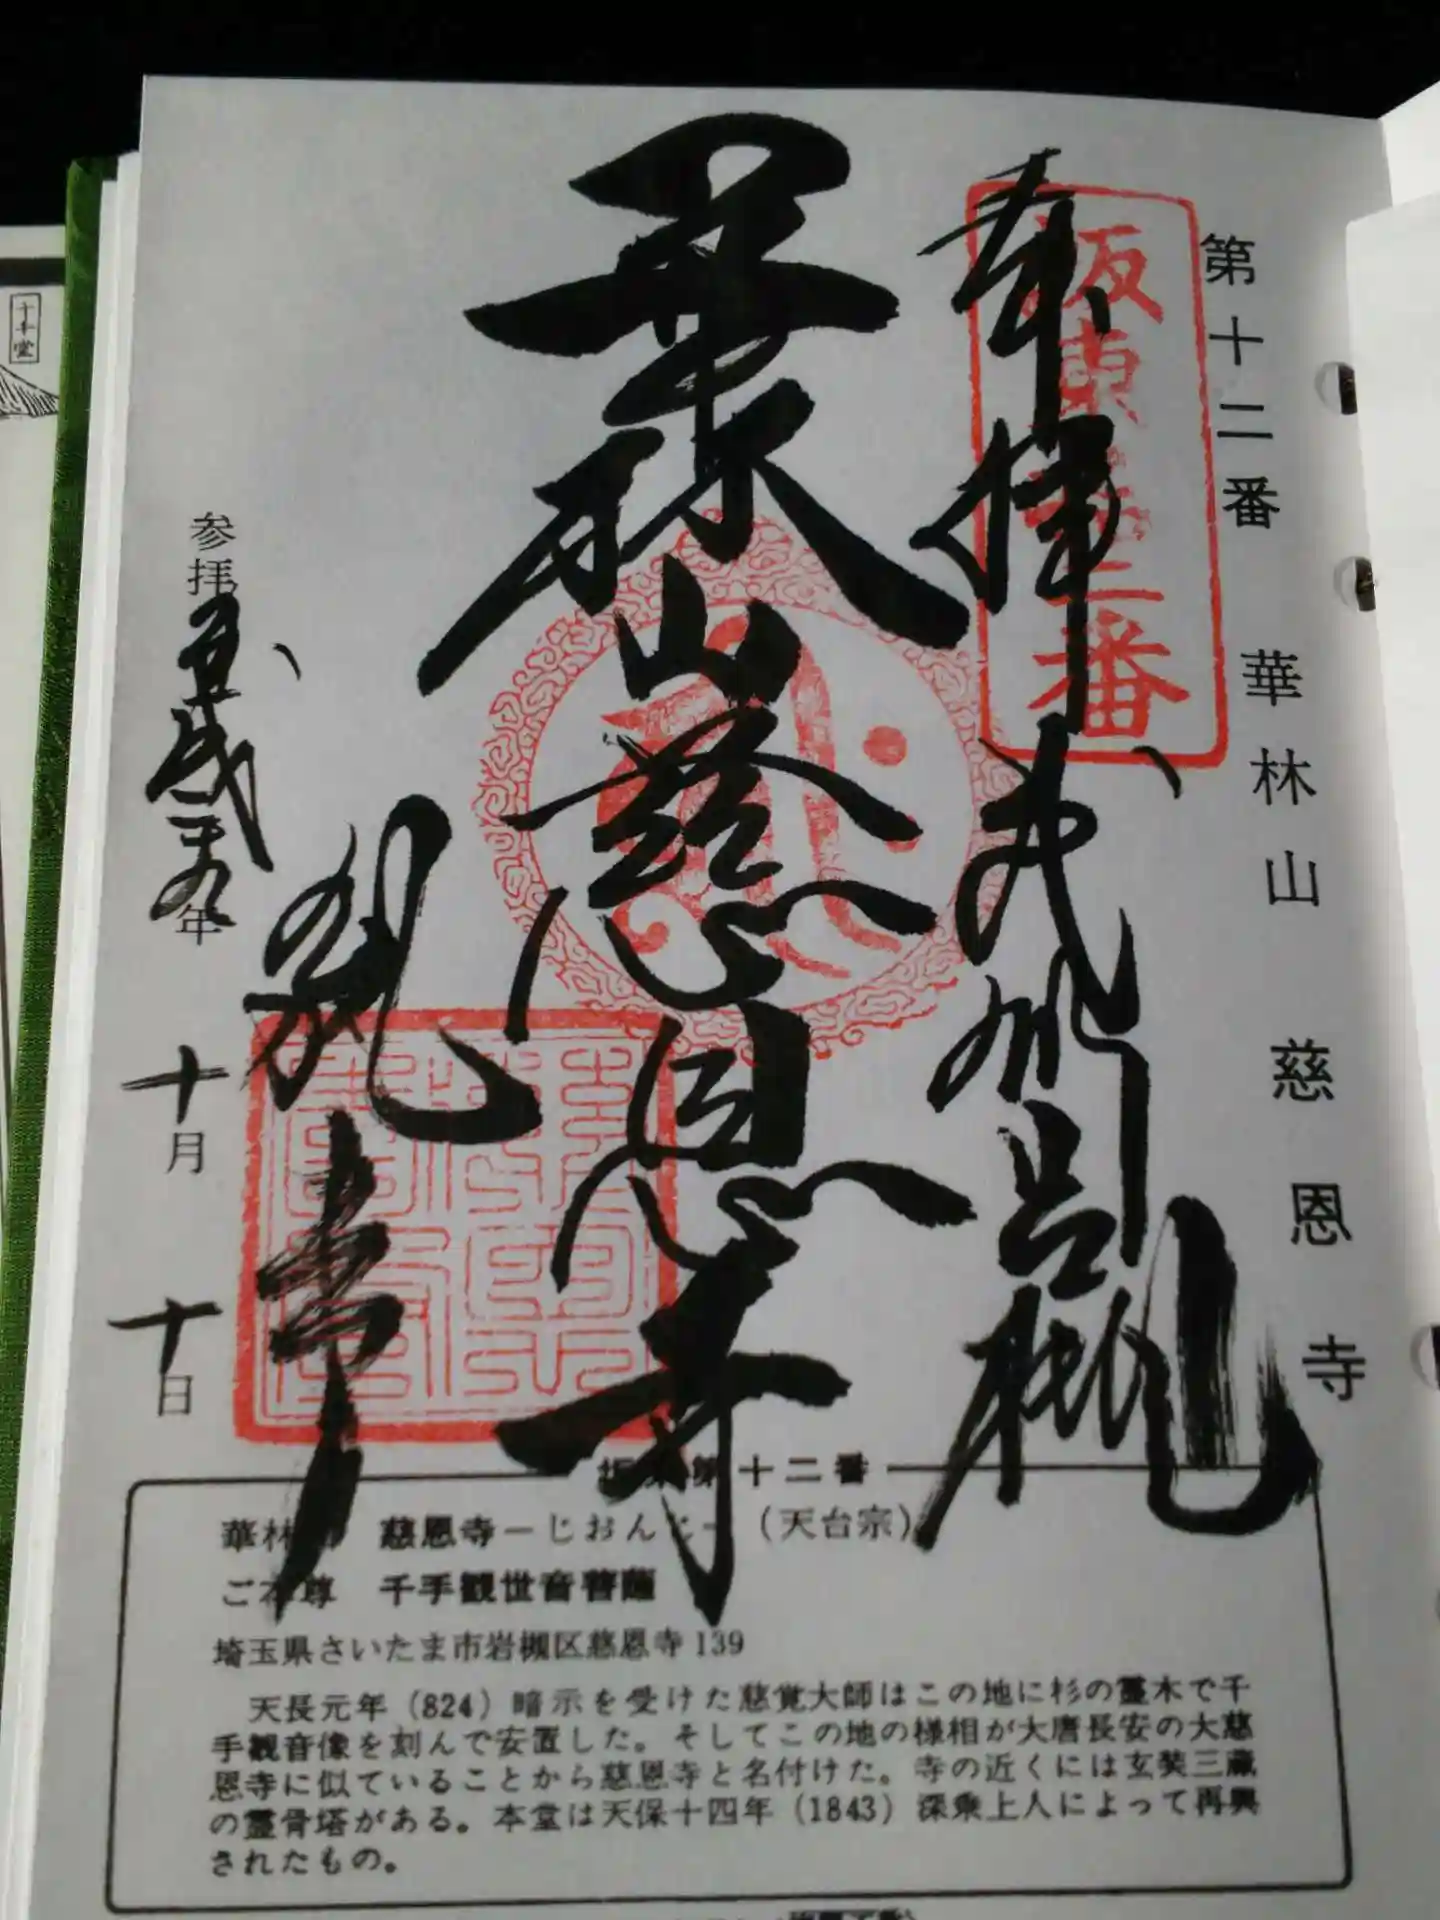 第十二番 華林山 慈恩寺
坂東第十二番
奉拝 武州岩槻
華林山慈恩寺
執事
参拝平成二十九年 十月 十日
坂東第十二番
華林山 慈恩寺―じおんじ―（天台宗）
ご本尊 千手観世音菩薩
埼玉県さいたま市岩槻区慈恩寺139
天長元年（824）暗示を受けた慈覚大師はこの地に杉の霊木で千
手観音像を刻んで安置した。そしてこの地の様相が大唐長安の大慈
恩寺に似ていることから慈恩寺と名付けた。寺の近くには玄奘三蔵
の霊骨塔がある。本堂は天保十四年（1843）深乗上人によって再興
されたもの。